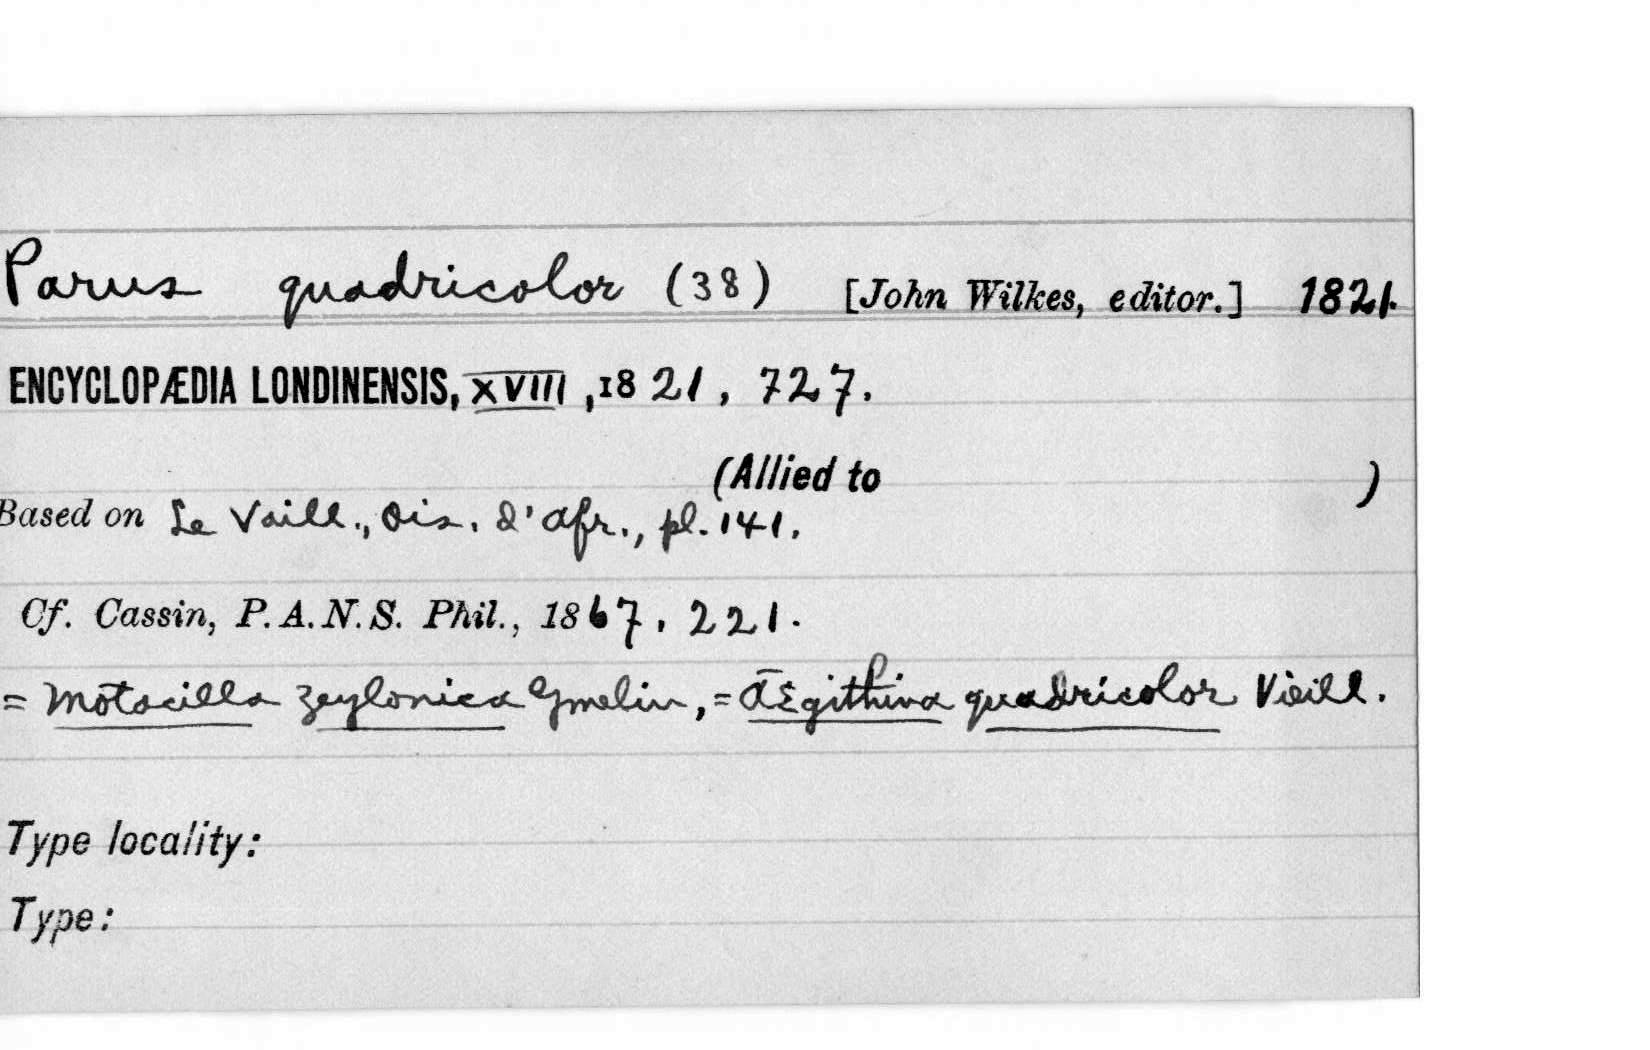 Parus quadricolor (38) [John Wilkes, editor.] 1821.
ENCYCLOPÆDIA LONDINENSIS, XVIII, 1821, 727.
(Allied to )
Based on Le Vaill., Ois. d'Afr., pl. 141.
Cf. Cassin, P. A. N. S. Phil., 1867, 221.
= Motacilla zeylonica Gmelin, = Ægithina quadricolor Vieill.
Type locality:
Type: